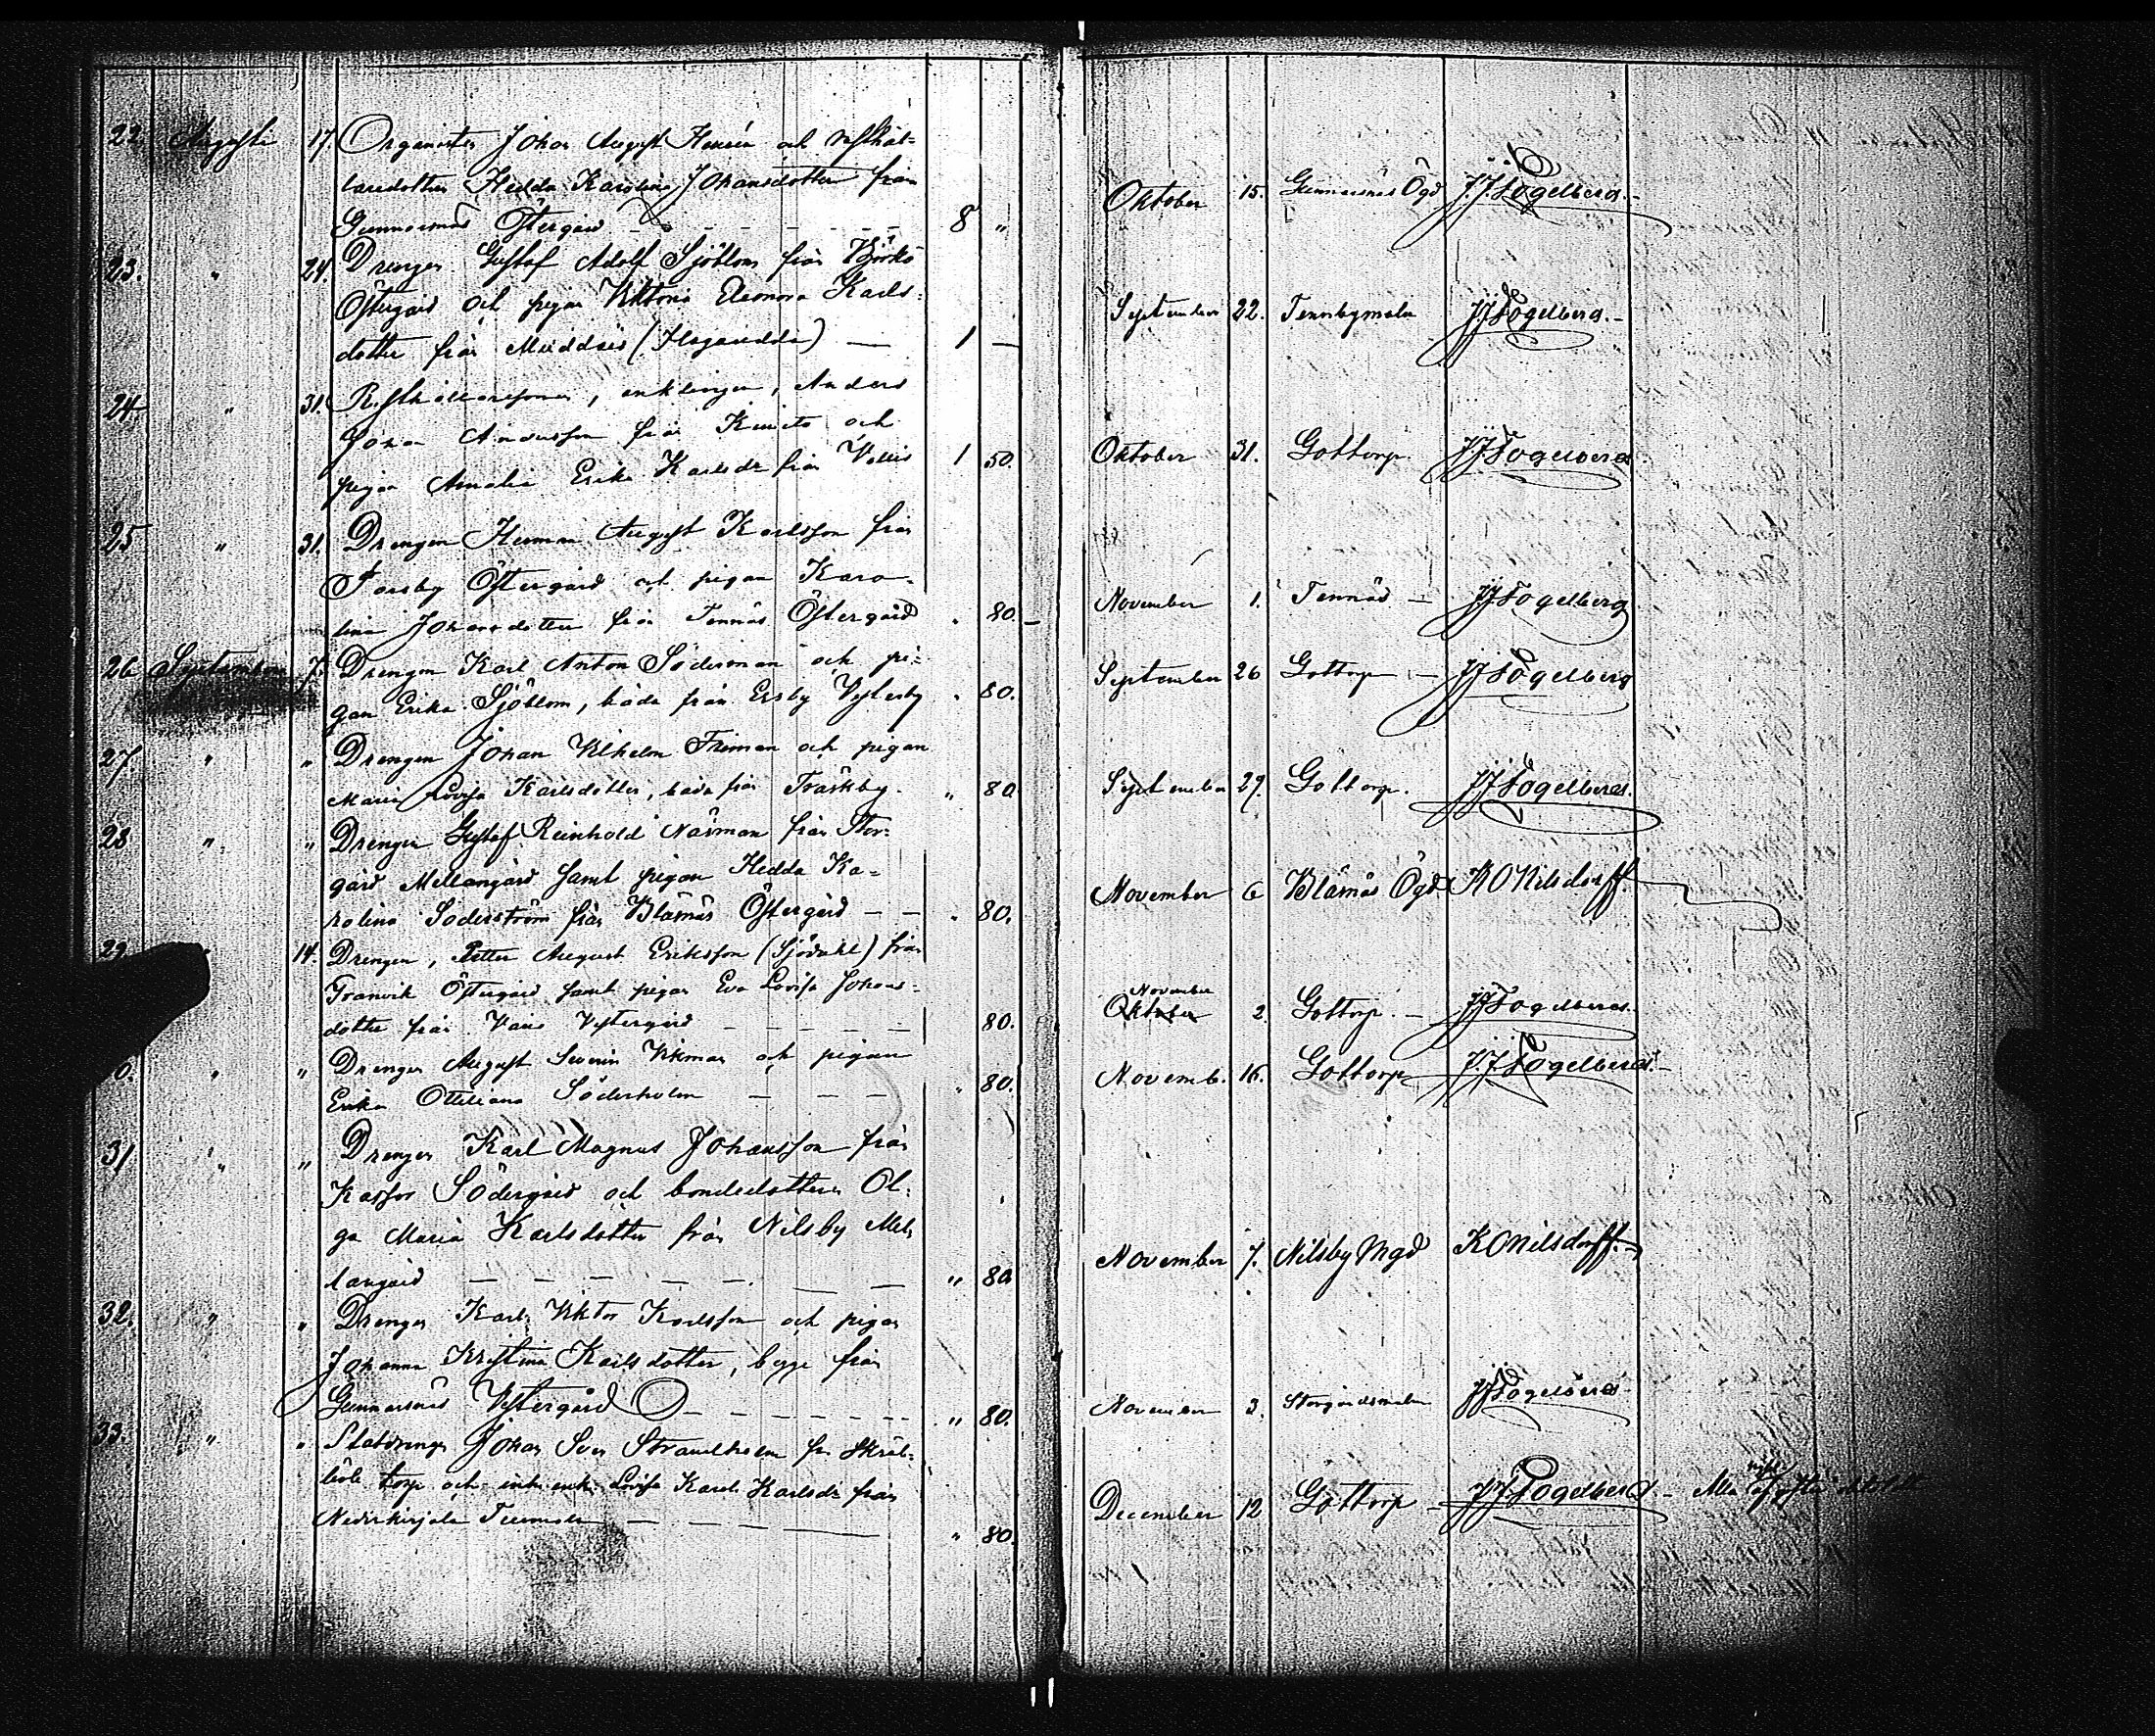 22. Augusti 17. Organisten Johan August Henrén och rusthål-
laredottren Hedda Karolina Johansdotter från
Gunnarsnäs Östergård - - - 8 "
Oktober 15. Gunnarsnäs Ögd J.J. Fogelberg.
23. " 24. Drengen Gustaf Adolf Sjöblom från Björkö
Östergård och pigan Viktoria Eleonora Karls-
dotter från Muddais (Hagaudda) — 1 —
September 22. Tennbymalm JJFogelberg.
24 " 31. Rusthållaresonen, enklingen, Anders
Johan Andersson från Kimito och
pigan Amalia Erika Karlsdr från Vallis 1 50.
Oktober 31. Gottorp. JJFogelberg
25 " 31. Drengen Herman August Karlsson från
Östergård och pigan Karo-
lina Johansdotter från Tennäs Östergård " 80.
November 1. Tennäs — JJFogelberg
26 September 7. Drengen Karl Anton Söderman och pi-
gan Erika Sjöblom, båda från Ersby Vesterby " 80.
September 26 Gottorp — JJFogelberg
27. " " Drengen Johan Vilhelm Friman och pigan
Maria Lovisa Karlsdotter, båda från Träskby. " 80
September 27. Gottorp. JJFogelberg.
28 " " Drengen Gustaf Reinhold Närman från Stor-
gård Mellangård samt pigan Hedda Ka-
rolina Söderström från Blämäs Östergård - - " 80.
November 6 Blämäs Ögd KONilsdorff.
29. " 14. Drengen, Petter August Eriksson (Sjödahl) från
Granvik Östergård samt pigan Eva Lovisa Johans-
dotter från Vestergård - - - - - 80.
November
Oktober 2. Gottorp. — JJFogelberg.
0. " " Drengen August Severin Vikman och pigan
Erika Otteliana Söderholm — — — " 80.
Novemb. 16. Gottorp J.JFogelberg.
31 " " Drengen Karl Magnus Johansson från
Kasfor Södergård och bondedottren Ol-
ga Maria Karlsdotter från Nilsby Mel-
langård — — — — — " 80
November 7. Nilsby Mgd KONilsdorff.
32. " " Drengen Karl Viktor Karlsson och pigan
Johanna Kristina Karlsdotter, begge från
Gunnarsnäs Vestergård - - - - " 80.
November 3. Storgårdsmalm JJFogelberg
33. " " Statdrengen Johan Sven Strandholm fr. Skräb-
böle torp och enkan Lovisa Karol. Karlsdr från
Nederkirjala - - - " 80.
December 12 Gottorp — JJFogelberg - Alla